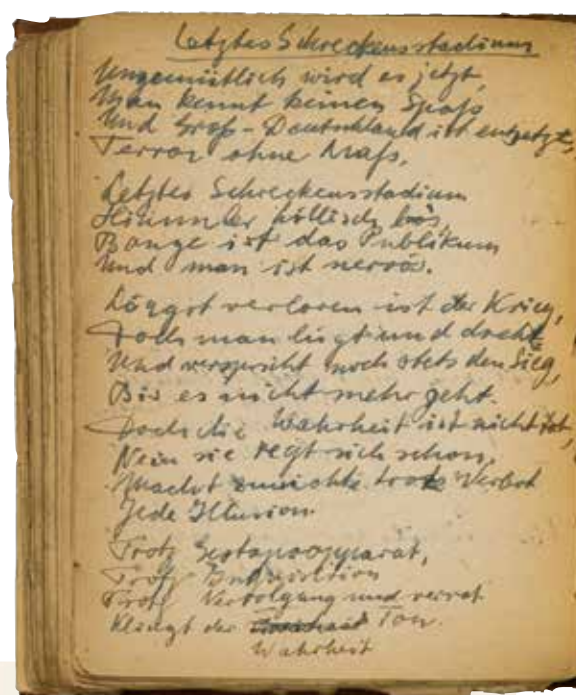 Letztes Schreckensstadium
Ungemütlich wird es jetzt,
Man kennt keinen Spaß
Und Groß-Deutschland ist entsetzt,
Terror ohne Maß.
Letztes Schreckensstadium
Himmler höllisch bös
Bange ist das Publikum
Und man ist nervös.
Längst verloren ist der Krieg,
Doch man lügt und dreht
Und verspricht noch stets den Sieg,
Bis es nicht mehr geht.
Doch die Wahrheit ist nicht tot,
Nein sie regt sich schon,
Macht zunichte trotz Verbot
Jede Illusion.
Trotz Gestapoapparat,
Trotz Inquisition
Trotz Verfolgung und verrat
Klingt der Ton.
Wahrheit